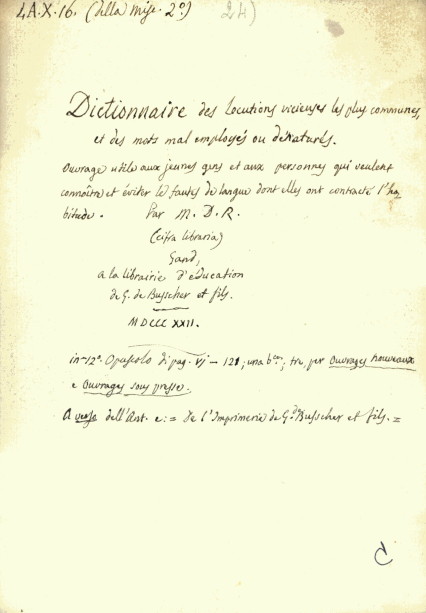 4A.X.16. (della Misc. 2º) 24)
Dictionnaire des locutions vicieuses les plus communes,
et des mots mal employés ou dénaturés.
Ouvrage utile aux jeunes gens et aux personnes qui veulent
connoître et éviter le fautes de langue dont elles ont contracté l'ha
bitude. Par M. D. R.
(cifra libraria)
Gand,
a la librairie d'education
de G. de Busscher et fils.
MDCCCXXII.
in-12º. Opuscolo di pag. vj - 121, una b.; tre, per Ouvrages nouveaux
e Ouvrages sous presse.
A verso dell'Ant. e: = De l'Imprimerie de G. d Busscher et fils. =
C